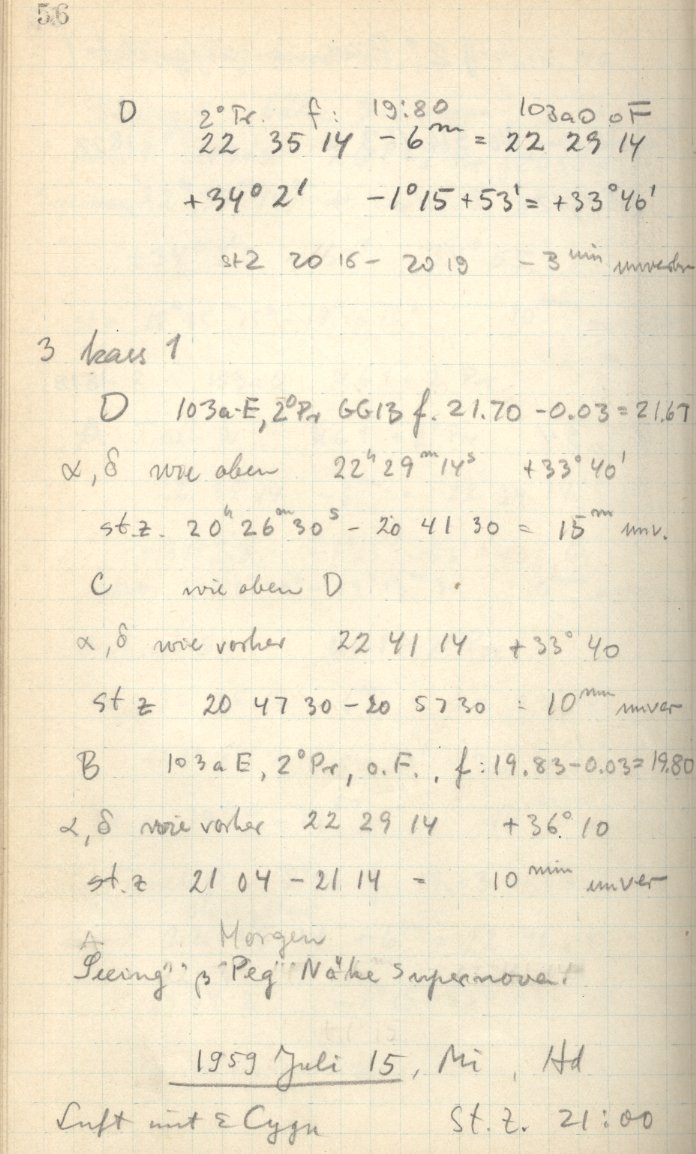 56
D 2° Pr. f: 19:80 103aO oF
22 35 14 - 6ᵐ = 22 29 14
+34° 2' -1°15 + 53' = +33°40'
stz 20 16 - 20 19 - 3 min unverbr
3 kass 1
D 103a-E, 2°Pr GG13 f. 21.70 - 0.03 = 21.67
α, δ wie oben 22ʰ 29ᵐ 14ˢ +33° 40'
st.z. 20ʰ 26ᵐ 30ˢ - 20 41 30 = 15ᵐ unv.
C wie oben D
α, δ wie vorher 22 41 14 +33° 40
st z 20 47 30 - 20 57 30 = 10 min unver
B 103aE, 2°Pr, o.F., f: 19.83 - 0.03 = 19.80
α, δ wie vorher 22 29 14 +36° 10
st.z 21 04 - 21 14 = 10 min unver
A Morgen
Seeing " β "Peg" Nähe Supernova.
1959 Juli 15, Mi, Hd
Luft mit ε Cygn St.z. 21:00